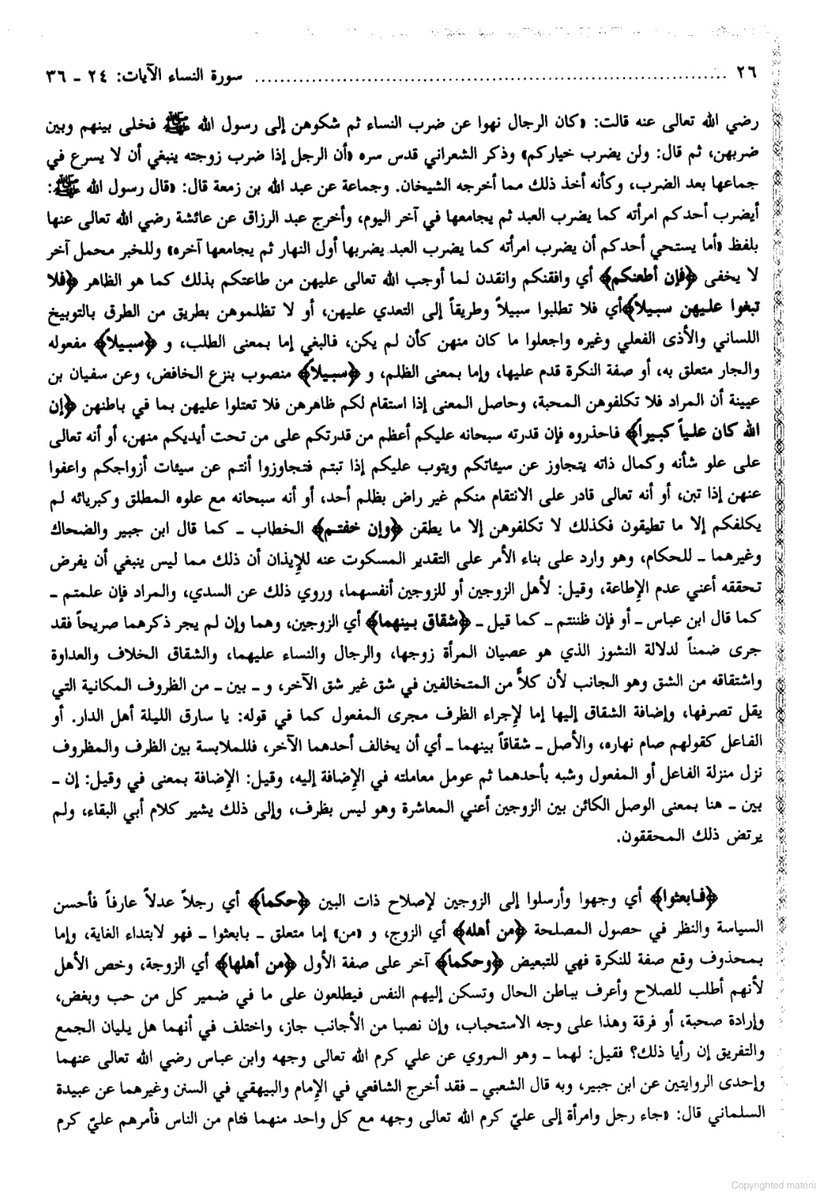 ٢٦ ........................................ سورة النساء الآيات: ٢٤ - ٣٦
رضي الله تعالى عنه قالت: «كان الرجال نهوا عن ضرب النساء ثم شكوهن إلى رسول الله ﷺ فخلى بينهم وبين
ضربهن، ثم قال: ولن يضرب خياركم» وذكر الشعراني قدس سره «أن الرجل إذا ضرب زوجته ينبغي أن لا يسرع في
جماعها بعد الضرب، وكأنه أخذ ذلك مما أخرجه الشيخان. وجماعة عن عبد الله بن زمعة قال: «قال رسول الله ﷺ:
أيضرب أحدكم امرأته كما يضرب العبد ثم يجامعها في آخر اليوم، وأخرج عبد الرزاق عن عائشة رضي الله تعالى عنها
بلفظ «أما يستحي أحدكم أن يضرب امرأته كما يضرب العبد يضربها أول النهار ثم يجامعها آخره» وللخبر محمل آخر
لا يخفى ﴿فإن أطعنكم﴾ أي وافقنكم وانقدن لما أوجب الله تعالى عليهن من طاعتكم بذلك كما هو الظاهر ﴿فلا
تبغوا عليهن سبيلاً﴾أي فلا تطلبوا سبيلاً وطريقاً إلى التعدي عليهن، أو لا تظلموهن بطريق من الطرق بالتوبيخ
اللساني والأذى الفعلي وغيره واجعلوا ما كان منهن كأن لم يكن، فالبغي إما بمعنى الطلب، و ﴿سبيلاً﴾ مفعوله
والجار متعلق به، أو صفة النكرة قدم عليها، وإما بمعنى الظلم، و ﴿سبيلاً﴾ منصوب بنزع الخافض، وعن سفيان بن
عيينة أن المراد فلا تكلفوهن المحبة، وحاصل المعنى إذا استقام لكم ظاهرهن فلا تعتلوا عليهن بما في باطنهن ﴿إن
الله كان علياً كبيراً﴾ فاحذروه فإن قدرته سبحانه عليكم أعظم من قدرتكم على من تحت أيديكم منهن، أو أنه تعالى
على علو شأنه وكمال ذاته يتجاوز عن سيئاتكم ويتوب عليكم إذا تبتم فتجاوزوا أنتم عن سيئات أزواجكم واعفوا
عنهن إذا تبن، أو أنه تعالى قادر على الانتقام منكم غير راض بظلم أحد، أو أنه سبحانه مع علوه المطلق وكبريائه لم
يكلفكم إلا ما تطيقون فكذلك لا تكلفوهن إلا ما يطقن ﴿وإن خفتم﴾ الخطاب ـ كما قال ابن جبير والضحاك
وغيرهما ـ للحكام، وهو وارد على بناء الأمر على التقدير المسكوت عنه للإيذان أن ذلك مما ليس ينبغي أن يفرض
تحققه أعني عدم الإطاعة، وقيل: لأهل الزوجين أو للزوجين أنفسهما، وروي ذلك عن السدي، والمراد فإن علمتم ـ
كما قال ابن عباس ـ أو فإن ظننتم ـ كما قيل ـ ﴿شقاق بينهما﴾ أي الزوجين، وهما وإن لم يجر ذكرهما صريحاً فقد
جرى ضمناً لدلالة النشوز الذي هو عصيان المرأة زوجها، والرجال والنساء عليهما، والشقاق الخلاف والعداوة
واشتقاقه من الشق وهو الجانب لأن كلاًّ من المتخالفين في شق غير شق الآخر، و ـ بين ـ من الظروف المكانية التي
يقل تصرفها، وإضافة الشقاق إليها إما لإجراء الظرف مجرى المفعول كما في قوله: يا سارق الليلة أهل الدار. أو
الفاعل كقولهم صام نهاره، والأصل ـ شقاقاً بينهما ـ أي أن يخالف أحدهما الآخر، فللملابسة بين الظرف والمظروف
نزل منزلة الفاعل أو المفعول وشبه بأحدهما ثم عومل معاملته في الإضافة إليه، وقيل: الإضافة بمعنى في وقيل: إن ـ
بين ـ هنا بمعنى الوصل الكائن بين الزوجين أعني المعاشرة وهو ليس بظرف، وإلى ذلك يشير كلام أبي البقاء، ولم
يرتض ذلك المحققون.
﴿فابعثوا﴾ أي وجهوا وأرسلوا إلى الزوجين لإصلاح ذات البين ﴿حكماً﴾ أي رجلاً عدلاً عارفاً فأحسن
السياسة والنظر في حصول المصلحة ﴿من أهله﴾ أي الزوج، و «من» إما متعلق ـ بابعثوا ـ فهو لابتداء الغاية، وإما
بمحذوف وقع صفة للنكرة فهي للتبعيض ﴿وحكماً﴾ آخر على صفة الأول ﴿من أهلها﴾ أي الزوجة، وخص الأهل
لأنهم أطلب للصلاح وأعرف بباطن الحال وتسكن إليهم النفس فيطلعون على ما في ضمير كل من حب وبغض،
وإرادة صحبة، أو فرقة وهذا على وجه الاستحباب، وإن نصبا من الأجانب جاز، واختلف في أنهما هل يليان الجمع
والتفريق إن رأيا ذلك؟ فقيل: لهما ـ وهو المروي عن علي كرم الله تعالى وجهه وابن عباس رضي الله تعالى عنهما
وإحدى الروايتين عن ابن جبير، وبه قال الشعبي ـ فقد أخرج الشافعي في الإمام والبيهقي في السنن وغيرهما عن عبيدة
السلماني قال: «جاء رجل وامرأة إلى عليّ كرم الله تعالى وجهه مع كل واحد منهما فئام من الناس فأمرهم عليّ كرم
Copyrighted materia